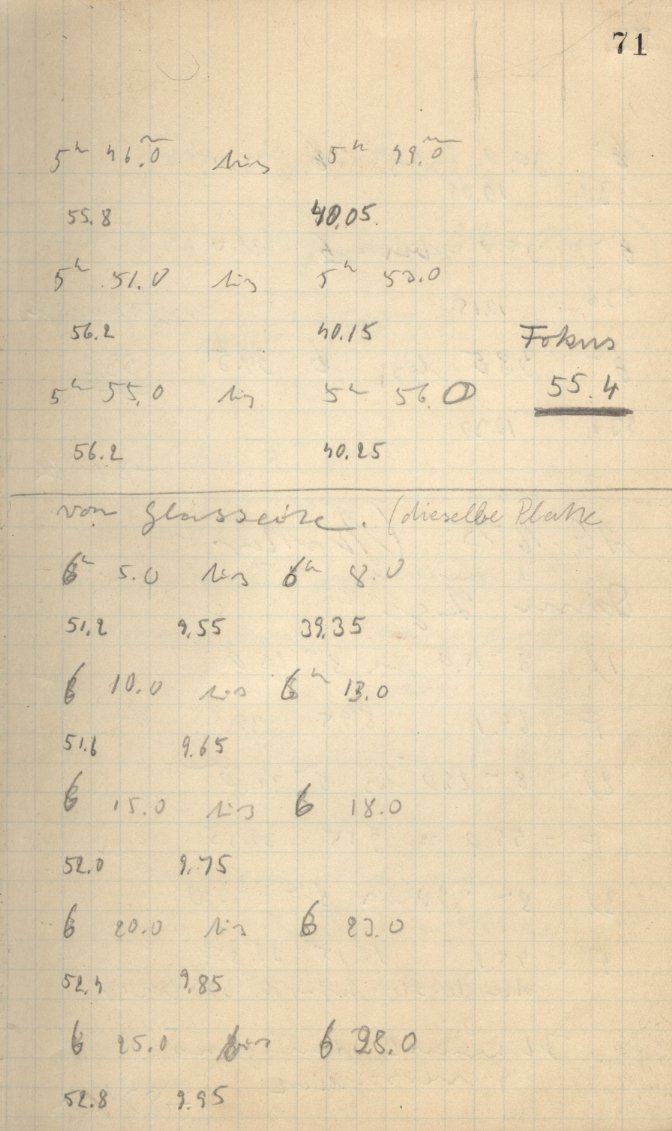 71
5h 46.0m bis 5h 49.0m
55.8 40.05
5h 51.0 bis 5h 53.0
56.2 40.15
Fokus
5h 55.0 bis 5h 56.0
55.4
56.2 40.25
von Glasseite. (dieselbe Platte
6h 5.0 bis 6h 8.0
51.2 9.55 39.35
6 10.0 bis 6h 13.0
51.6 9.65
6 15.0 bis 6 18.0
52.0 9.75
6 20.0 bis 6 23.0
52.4 9.85
6 25.0 bis 6 28.0
52.8 9.95